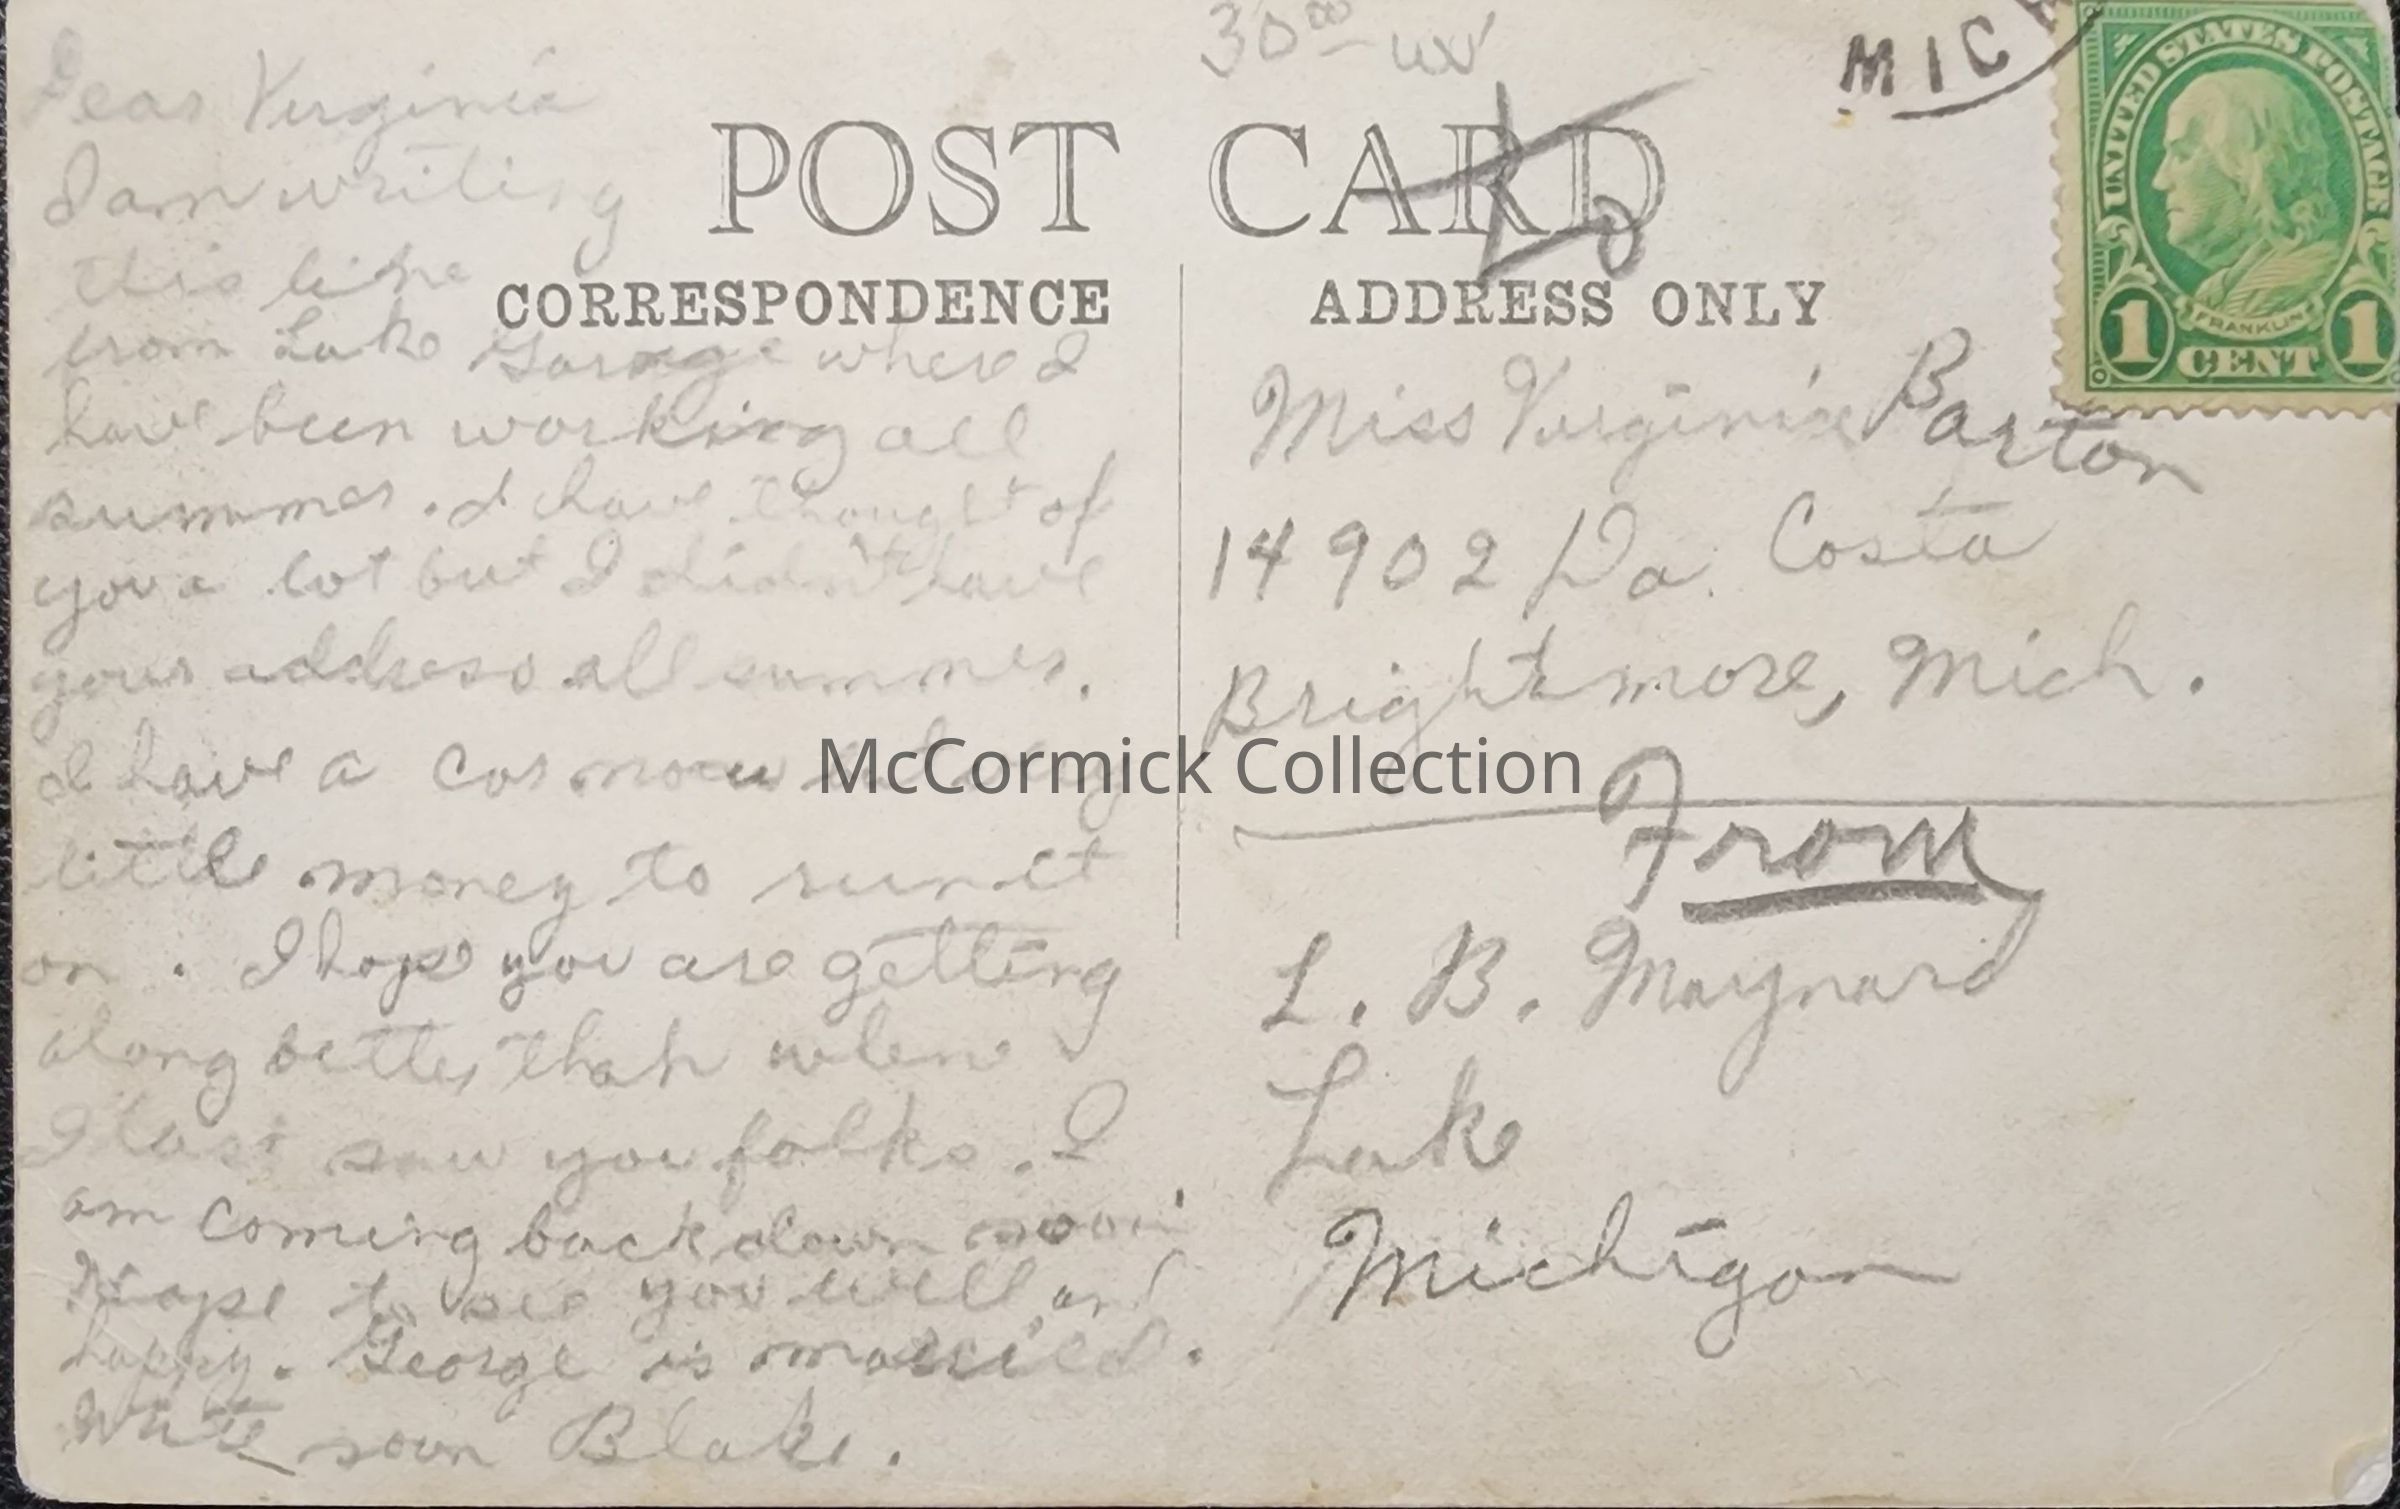 30⁰⁰ uxx
MICH
UNITED STATES POSTAGE
FRANKLIN
1 CENT 1
POST CARD
CORRESPONDENCE
ADDRESS ONLY
Dear Virginia
I am writing
this line
from Lake Garage where I
have been working all
summer. I have thought of
you a lot but I didn't have
your address all summer.
I have a car now
little money to run it
on. I hope you are getting
along better than when
I last saw you folks. I
am coming back down soon
Hope to see you well and
happy. George is married.
Write soon Blake.
Miss Virginia Barton
14902 Da. Costa
Brightmore, Mich.
From
L. B. Maynard
Lake
Michigan
McCormick Collection